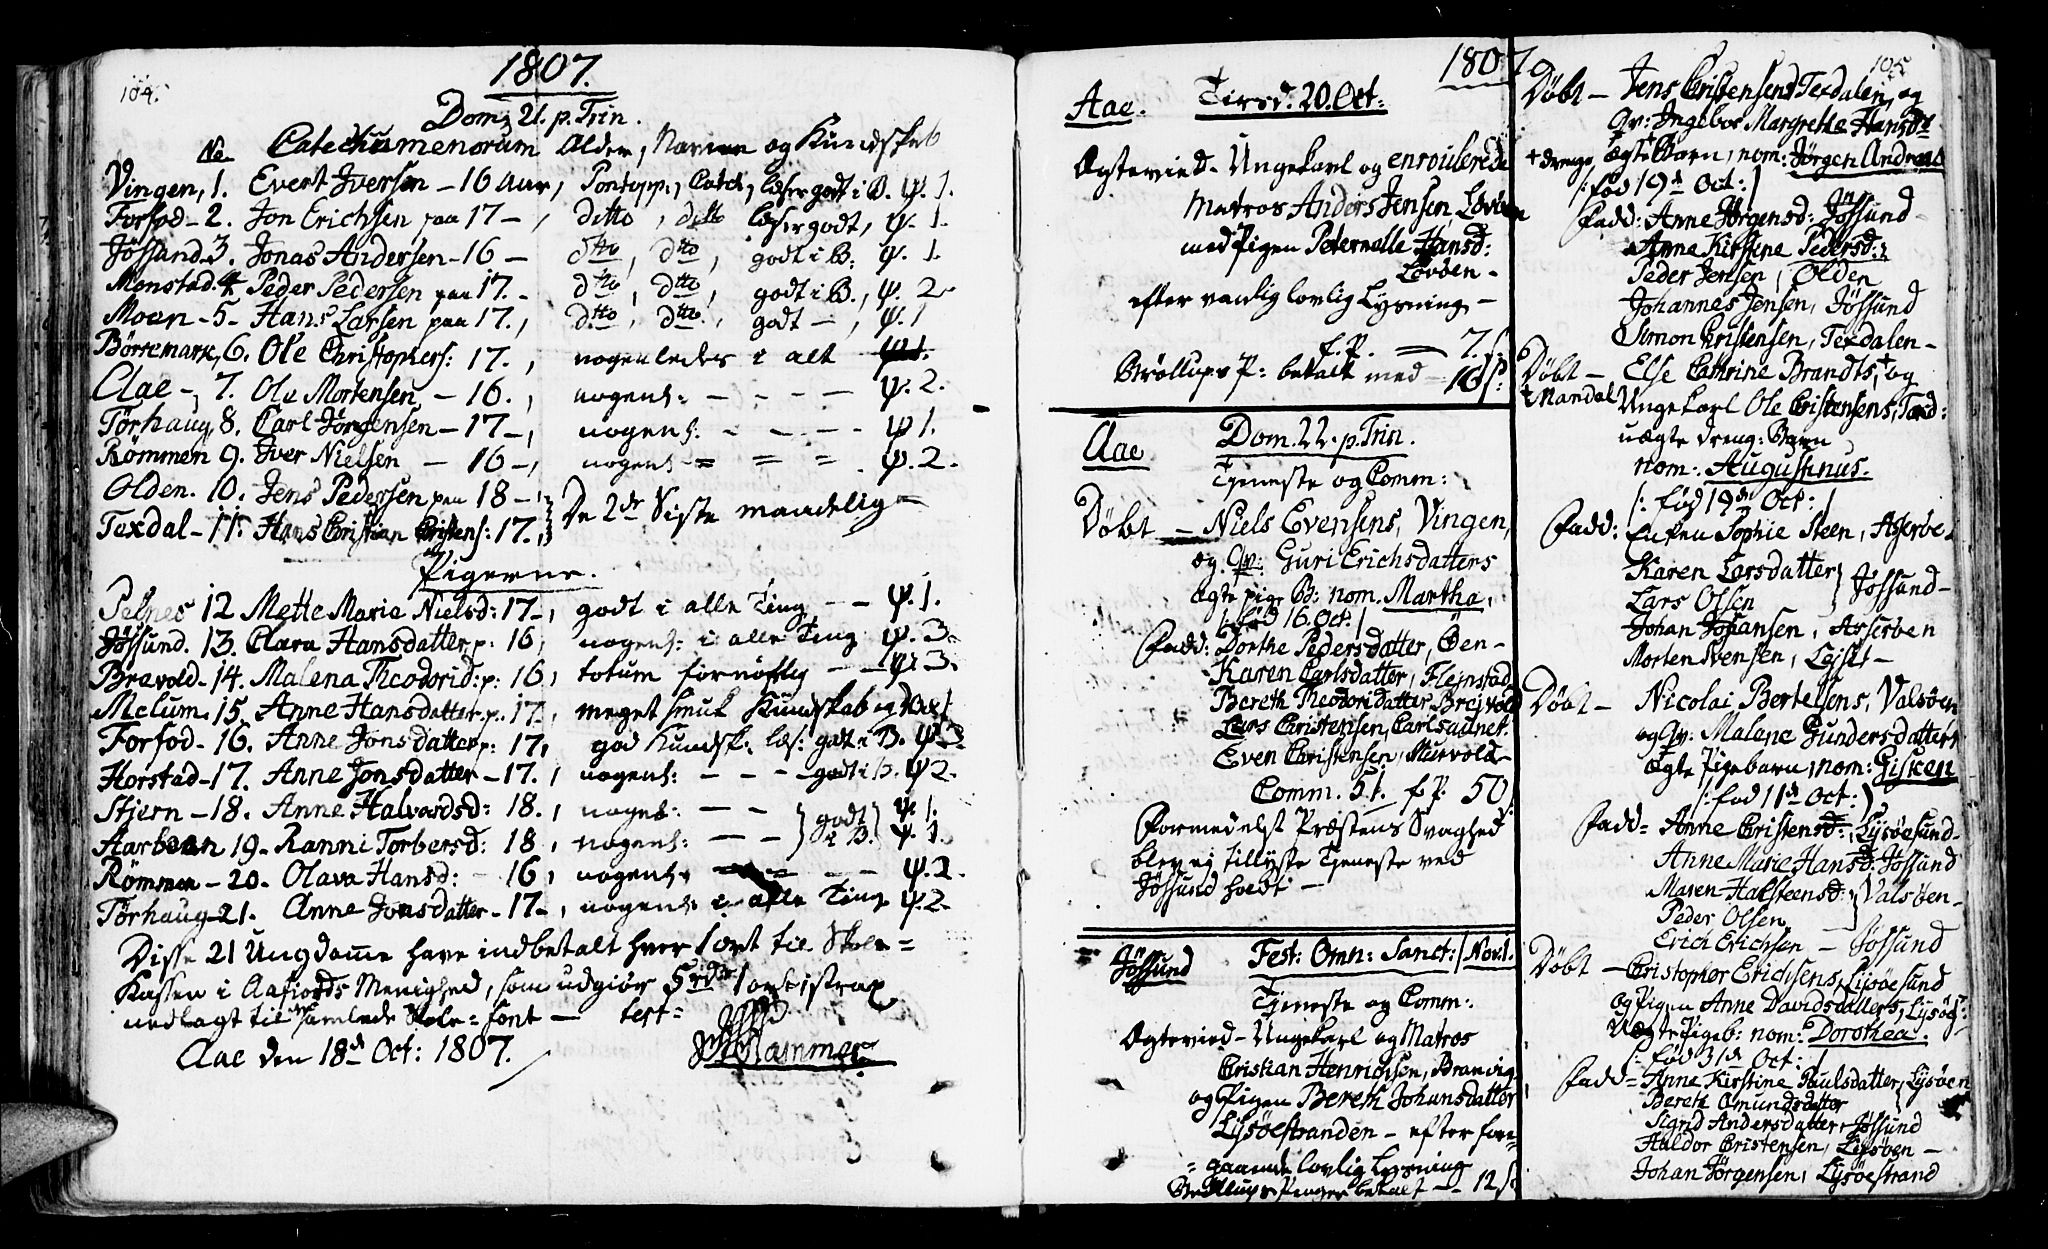 104.
1807.
Dom. 21. p. Trin.
No Catechumenorum Alder, Navne og Kundskab
Vingen, 1. Evert Iversen - 16 Aar, Pontopp:, Catech, læser godt i B. ψ. 1.
Forfod - 2. Jon Erichsen paa 17 -, ditto, ditto læser godt, ψ. 1.
Jössund. 3. Jonas Andersen - 16 - dtto, dtto, godt i B: ψ. 1.
Monstad. 4. Peder Pedersen paa 17. - dtto, dtto, godt i B., ψ. 2
Moen - 5 - Hans Larsen paa 17., dtto, dtto, godt -, ψ. 1
Börremark, 6. Ole Christophers: 17., nogenledes i alt
Aae - 7. Ole Mortensen - 16., nogenl: - - - - ψ. 2.
Törhaug, 8. Carl Jörgensen - 17 -, nogenl: - - - - ψ 1.
Römmen 9. Iver Nielsen - 16 -, nogenl - = = = . ψ. 2.
Olden. 10. Jens Pedersen paa 18 -
Texdal - 11. Hans Christian Cristens: 17., De 2de Siste maadelig -
Pigerne.
Pelnes 12 Mette Marie Nielsd: 17 -, godt i alle Ting - - ψ. 1.
Jössund. 13. Clara Hansdatter p: 16, nogenl: i alle Ting ψ. 3.
Brevold - 14. Malena Theodorid: p: 16, totum fornöftlig - - ψ. 3.
Melum. 15. Anne Hansdatter p. 17 -, meget smuk Kundskab og
Forfod - 16. Anne Jonsdatter p: 17, god Kundsk: læs: godt i B.
Horstad - 17. Anne Jonsdatter - 17., nogenl: - - - - godt i B. ψ 2.
Stjern - 18. Anne Halvardsd: 18., nogel: - - } godt ψ. 1.
Aarbeen 19 - Ranni Torbersd: 18, nogenl: - - } i B. ψ. 1.
Römmen - 20. Olava Hansd: - 16, nogenl: - - - ψ. 2.
Törhaug - 21. Anne Jonsdatter - 17 -, nogenl: i alle Ting ψ. 2 -
Disse 21 Ungdome have indbetalt hver 1 ort til Skole =
Kassen i Aafiords Menighed, som udgiør 5 rdr. 1 ort
nedlagt til samlede Skole = font - test =
Aae den 18d Oct: 1807. Hammer
1807
Aae. Tirsd. 20. Oct:
Ægtevied - Ungekarl og enroulerede
Matros Anders Jensen Lövöen
med Pigen Peternelle Hansd:
Lovöen -
efter vanlig lovlig Lysning -
f. P. = 7. s.
Bröllups P: betalt med - 16 s:
Aae Dom. 22. p. Trin.
Tjeneste og Comm:
Döbt - Niels Evensens, Vingen,
og Qv: Guri Erichsdatters
ægte pige B: nom. Martha,
/: fød 16. Oct: /
Fadd: Dorthe Pedersdatter, Öen -
Karen Carlsdatter, Flejnstad
Bereth Theodoridatter Breivold
Lars Christensen, Carlsaunet.
Even Christensen, Murvold -
Comm. 51. f. P. 50.
Formedelst Præstens Svaghed
blev ej tillyste Tjeneste ved
Jössund holdt -
Jössund Fest: Omn: Sanct: / Nov. 1.
Tjeneste og Comm:.
Ægteviede - Ungekarl og Matros
Cristian Henrichsen, Branvig
og Pigen Bereth Johansdatter
Lysöestranden - efter fore =
= gaaende lovlig Lysning
Bröllups Penger betalt - 12 s.
105
Döbt - Jens Cristensens Texdalen, og
Qv: Ingebor Margrethe Hansdr
+ drenge ægte Barn, nom: Jörgen Andreas
/: fød 19d Oct: /
Fadd: Anne Jörgensd: Jössund
Anne Kirstine Pedersd:
Peder Jensen, Olden
Johannes Jensen, Jössund
Simon Cristensen, Texdalen -
Döbt - Else Cathrine Brandts,+ og
+ Mandal Ungekarl Ole Cristensens, Texd:
uægte dreng: Barn
nom: Augustinus.
/: fød 19de Oct: /
Fadd: Enken Sophie Steen, Aserbe.
Karen Larsdatter } Jössund -
Lars Olsen
Johan Johansen, Asseröen
Morten Svensen,
Döbt - Nicolai Bertelsens, Valsöen
og Qv: Malene Gundersdatters
ægte Pigebarn, nom: Gisken
/: fød 11d Oct: /
Fadd = Anne Cristensd: Lysöesund -
Anne Marie Hansd: Jössund
Maren Halsteensd: } Valsöen -
Peder Olsen
Erich Erichsen - Jössund
Döbt - Cristopher Erichsens, Lysöesund
og Pigen Anne Davidsdatters, Lysöes:
Uægte Pigeb: nom: Dorothea.
/: fød 31d Oct: /
Fadd = Anne Kirstine Paulsdatter, Lysöen
Bereth Omundsdatter
Sigrid Andersdatter, Jössund
Haldor Cristensen, Lysöen -
Johan Jörgensen, Lysöestrand